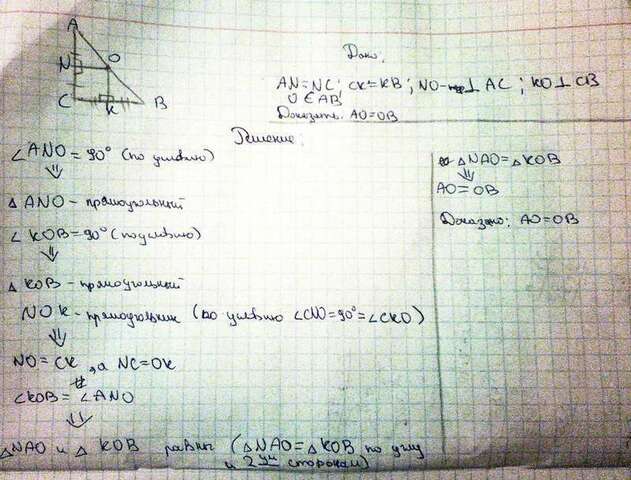 A
N
O
C
K
B
Дано:
AN=NC; CK=KB; NO ⊥ AC; KO⊥CB
O ∈ AB
Доказать: AO=OB
Решение:
∠ANO=90° (по условию)
⇓
△ ANO - прямоугольный
∠ KOB=90° (по условию)
⇓
△ KOB - прямоугольный
NOK - прямоугольник (по условию ∠CNO=90°=∠CKO)
⇓
NO=CK, а NC=OK
∠KOB=∠ANO
⇓
△NAO и △ KOB равны (△NAO=△KOB по углу
и 2ум сторонам)
△NAO=△KOB
⇓
AO=OB
Доказано: AO=OB